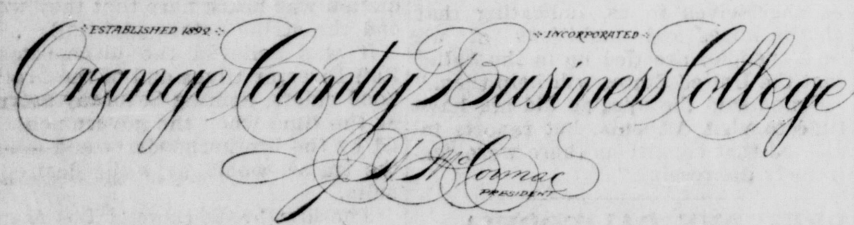 ESTABLISHED 1892 INCORPORATED
Orange County Business College
J. W. McCormac
PRESIDENT